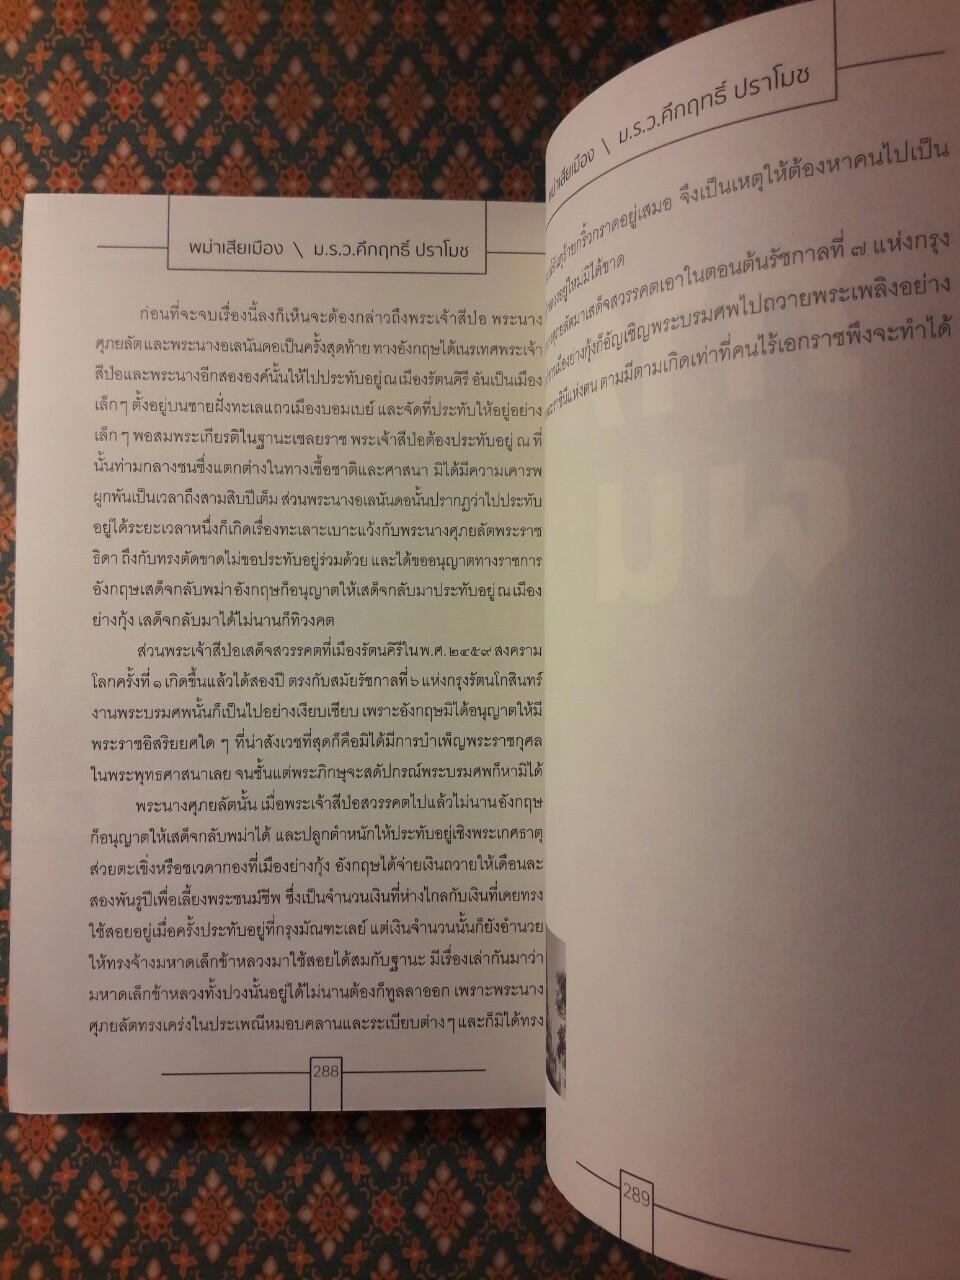 พม่าเสียเมือง \ ม.ร.ว.คึกฤทธิ์ ปราโมช
ก่อนที่จะจบเรื่องนี้ลงก็เห็นจะต้องกล่าวถึงพระเจ้าสีป่อ พระนาง
ศุภยลัต และพระนางอเลนันดอเป็นครั้งสุดท้าย ทางอังกฤษได้เนรเทศพระเจ้า
สีป่อและพระนางอีกสององค์นั้นให้ไปประทับอยู่ ณ เมืองรัตนคิรี อันเป็นเมือง
เล็กๆ ตั้งอยู่บนชายฝั่งทะเลแถวเมืองบอมเบย์ และจัดที่ประทับให้อยู่อย่าง
เล็กๆ พอสมพระเกียรติในฐานะเชลยราช พระเจ้าสีป่อต้องประทับอยู่ ณ ที่
นั้นท่ามกลางชนซึ่งแตกต่างในทางเชื้อชาติและศาสนา มิได้มีความเคารพ
ผูกพันเป็นเวลาถึงสามสิบปีเต็ม ส่วนพระนางอเลนันดอนั้นปรากฏว่าไปประทับ
อยู่ได้ระยะเวลาหนึ่งก็เกิดเรื่องทะเลาะเบาะแว้งกับพระนางศุภยลัตพระราช
ธิดา ถึงกับทรงตัดขาดไม่ขอประทับอยู่ร่วมด้วย และได้ขออนุญาตทางราชการ
อังกฤษเสด็จกลับพม่า อังกฤษก็อนุญาตให้เสด็จกลับมาประทับอยู่ ณ เมือง
ย่างกุ้ง เสด็จกลับมาได้ไม่นานก็ทิวงคต
ส่วนพระเจ้าสีป่อเสด็จสวรรคตที่เมืองรัตนคิรีใน พ.ศ. ๒๔๕๙ สงคราม
โลกครั้งที่ ๑ เกิดขึ้นแล้วได้สองปี ตรงกับสมัยรัชกาลที่ ๖ แห่งกรุงรัตนโกสินทร์
งานพระบรมศพนั้นก็เป็นไปอย่างเงียบเชียบ เพราะอังกฤษมิได้อนุญาตให้มี
พระราชอิสริยยศใด ๆ ที่น่าสังเวชที่สุดก็คือมิได้มีการบำเพ็ญพระราชกุศล
ในพระพุทธศาสนาเลย จนชั้นแต่พระภิกษุจะสดัปกรณ์พระบรมศพก็หามิได้
พระนางศุภยลัตนั้น เมื่อพระเจ้าสีป่อสวรรคตไปแล้วไม่นาน อังกฤษ
ก็อนุญาตให้เสด็จกลับพม่าได้ และปลูกตำหนักให้ประทับอยู่เชิงพระเกศธาตุ
ส่วยตะเขิ่งหรือชเวดากองที่เมืองย่างกุ้ง อังกฤษได้จ่ายเงินถวายให้เดือนละ
สองพันรูปีเพื่อเลี้ยงพระชนม์ชีพ ซึ่งเป็นจำนวนเงินที่ห่างไกลกับเงินที่เคยทรง
ใช้สอยอยู่เมื่อครั้งประทับอยู่ที่กรุงมัณฑะเลย์ แต่เงินจำนวนนั้นก็ยังอำนวย
ให้ทรงจ้างมหาดเล็กข้าหลวงมาใช้สอยได้สมกับฐานะ มีเรื่องเล่ากันมาว่า
มหาดเล็กข้าหลวงทั้งปวงนั้นอยู่ได้ไม่นานต้องก็ทูลลาออก เพราะพระนาง
ศุภยลัตทรงเคร่งในประเพณีหมอบคลานและระเบียบต่างๆ และก็มิได้ทรง
288
พม่าเสียเมือง \ ม.ร.ว.คึกฤทธิ์ ปราโมช
ดุร้ายกริ้วกราดอยู่เสมอ จึงเป็นเหตุให้ต้องหาคนไปเป็น
อยู่ใหม่มิได้ขาด
ศุภยลัตมาเสด็จสวรรคตเอาในตอนต้นรัชกาลที่ ๗ แห่งกรุง
เมืองย่างกุ้งก็อัญเชิญพระบรมศพไปถวายพระเพลิงอย่าง
แห่งตน ตามมีตามเกิดเท่าที่คนไร้เอกราชพึงจะทำได้
289